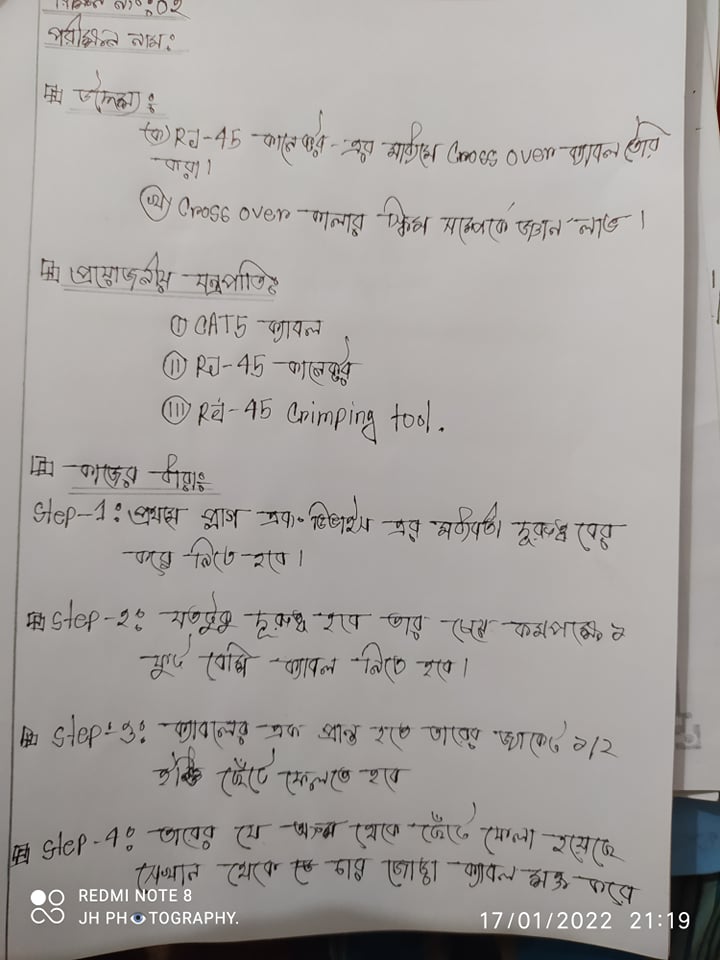 পরীক্ষন নাং:02
পরীক্ষন নাম:
উদ্দেশ্য:
(ক) RJ-45 কানেক্টর-এর মাধ্যমে Cross over ক্যাবল তৈরি
করা।
(খ) Cross over কালার স্কিম সম্পর্কে জ্ঞান লাভ।
প্রয়োজনীয় যন্ত্রপাতি:
(I) CAT5 ক্যাবল
(II) RJ-45 কানেক্টর
(III) RJ-45 Crimping tool.
কাজের ধারা:
Step-1: প্রথমে প্লাগ এবং ডিভাইস এর মধ্যবর্তী দূরত্ব বের
করে নিতে হবে।
Step-2: যতটুকু দূরত্ব হবে তার কমপক্ষে ১
ফুট বেশি ক্যাবল নিতে হবে।
Step-3: ক্যাবলের এক প্রান্ত হতে তারের জ্যাকেট ১/২
ইঞ্চি ছেঁটে ফেলতে হবে
Step-4: তারের যে অংশ থেকে ছেঁটে ফেলা হয়েছে
সেখান থেকে চার জোড়া ক্যাবল মুক্ত করে
REDMI NOTE 8
JH PHOTOGRAPHY.
17/01/2022 21:19